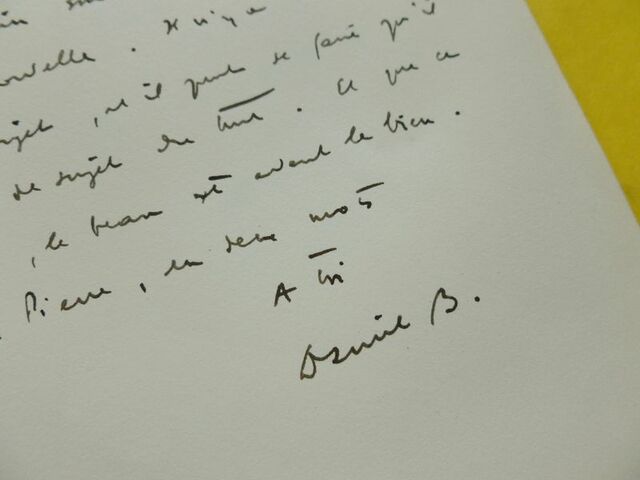 ouvelle. Il n'y a
sujet, et il peut se faire qu'il
de sujet du tout. Ce que ce
, le beau est avant le bien.
Pierre, en deux mots
A toi
Daniel B.